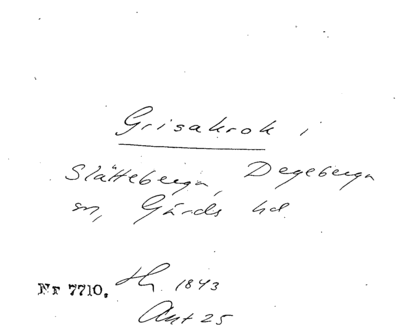 Grisakrok i
Slätteberga, Degeberga
sn, Gärds hd
Nr 7710. 1843
Akt 25